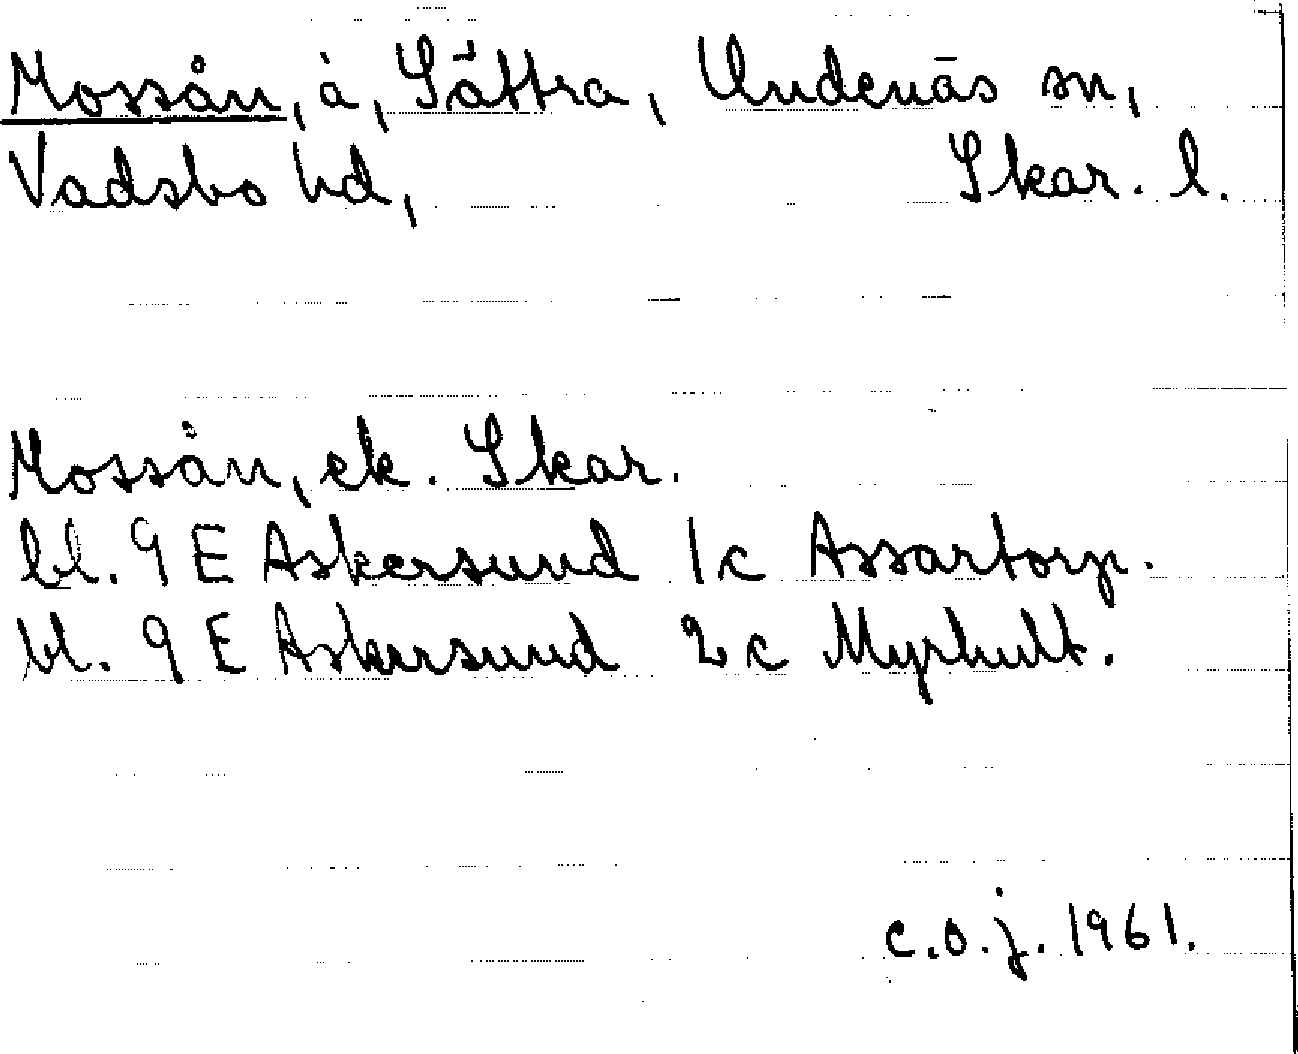 Mossån, å, Sättra, Undenäs sn,
Vadsbo hd, Skar. l.
Mossån, ek. Skar.
bl. 9 E Askersund 1c Assartorp.
bl. 9 E Askersund 2c Myrhult.
c.o.j. 1961.